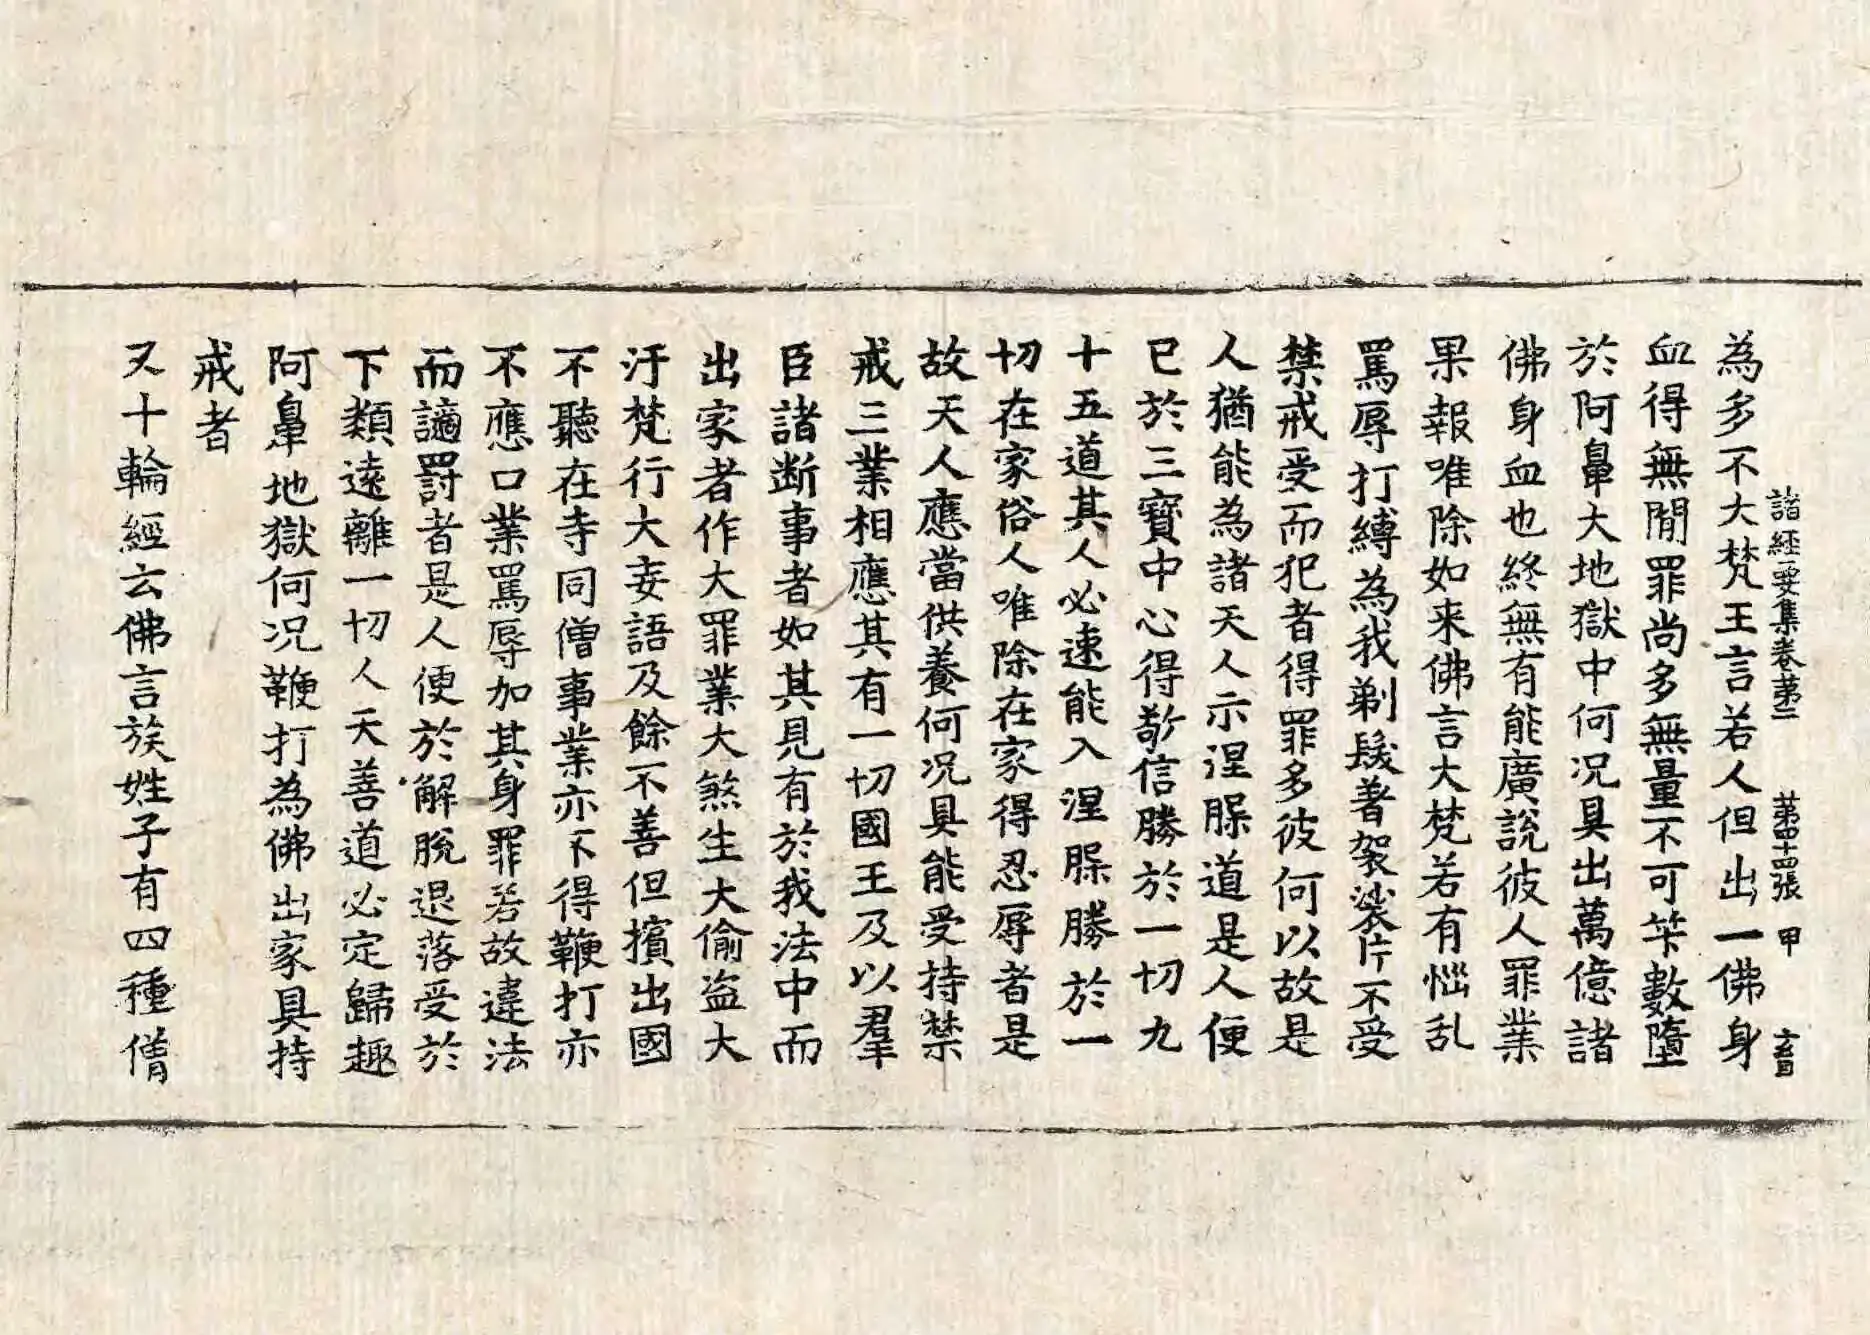 諸經要集卷第二 第四十四張 甲
為多不大梵王言若人但出一佛身
血得無閒罪尚多無量不可筭數墮
於阿鼻大地獄中何況具出萬億諸
佛身血也終無有能廣說彼人罪業
果報唯除如来佛言大梵若有惱乱
罵辱打縛為我剃髮著袈裟片不受
禁戒受而犯者得罪多彼何以故是
人猶能為諸天人示涅槃道是人便
已於三寶中心得敬信勝於一切九
十五道其人必速能入涅槃勝於一
切在家俗人唯除在家得忍辱者是
故天人應當供養何況具能受持禁
戒三業相應其有一切國王及以羣
臣諸断事者如其見有於我法中而
出家者作大罪業大煞生大偷盗大
汙梵行大妄語及餘不善但擯出國
不聽在寺同僧事業亦不得鞭打亦
不應口業罵辱加其身罪若故違法
而謫罰者是人便於解脫退落受於
下類遠離一切人天善道必定歸趣
阿鼻地獄何況鞭打為佛出家具持
戒者
又十輪經云佛言族姓子有四種僧